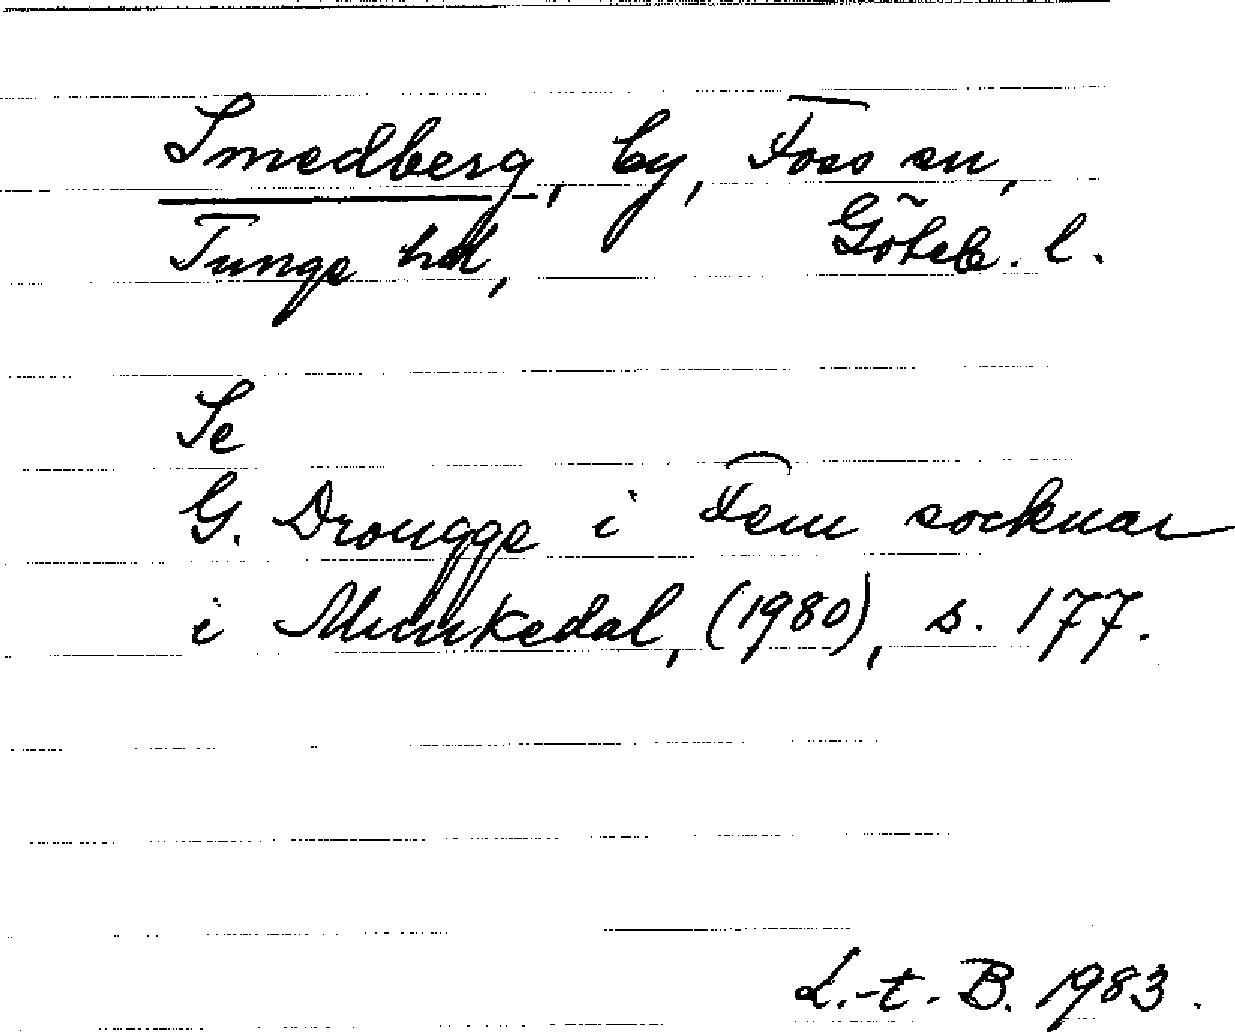 Smedberg, by, Foss sn,
Tunge hd, Göteb. l.
Se
G. Drougge i Fem socknar
i Munkedal, (1980), s. 177.
L.-t. B. 1983.